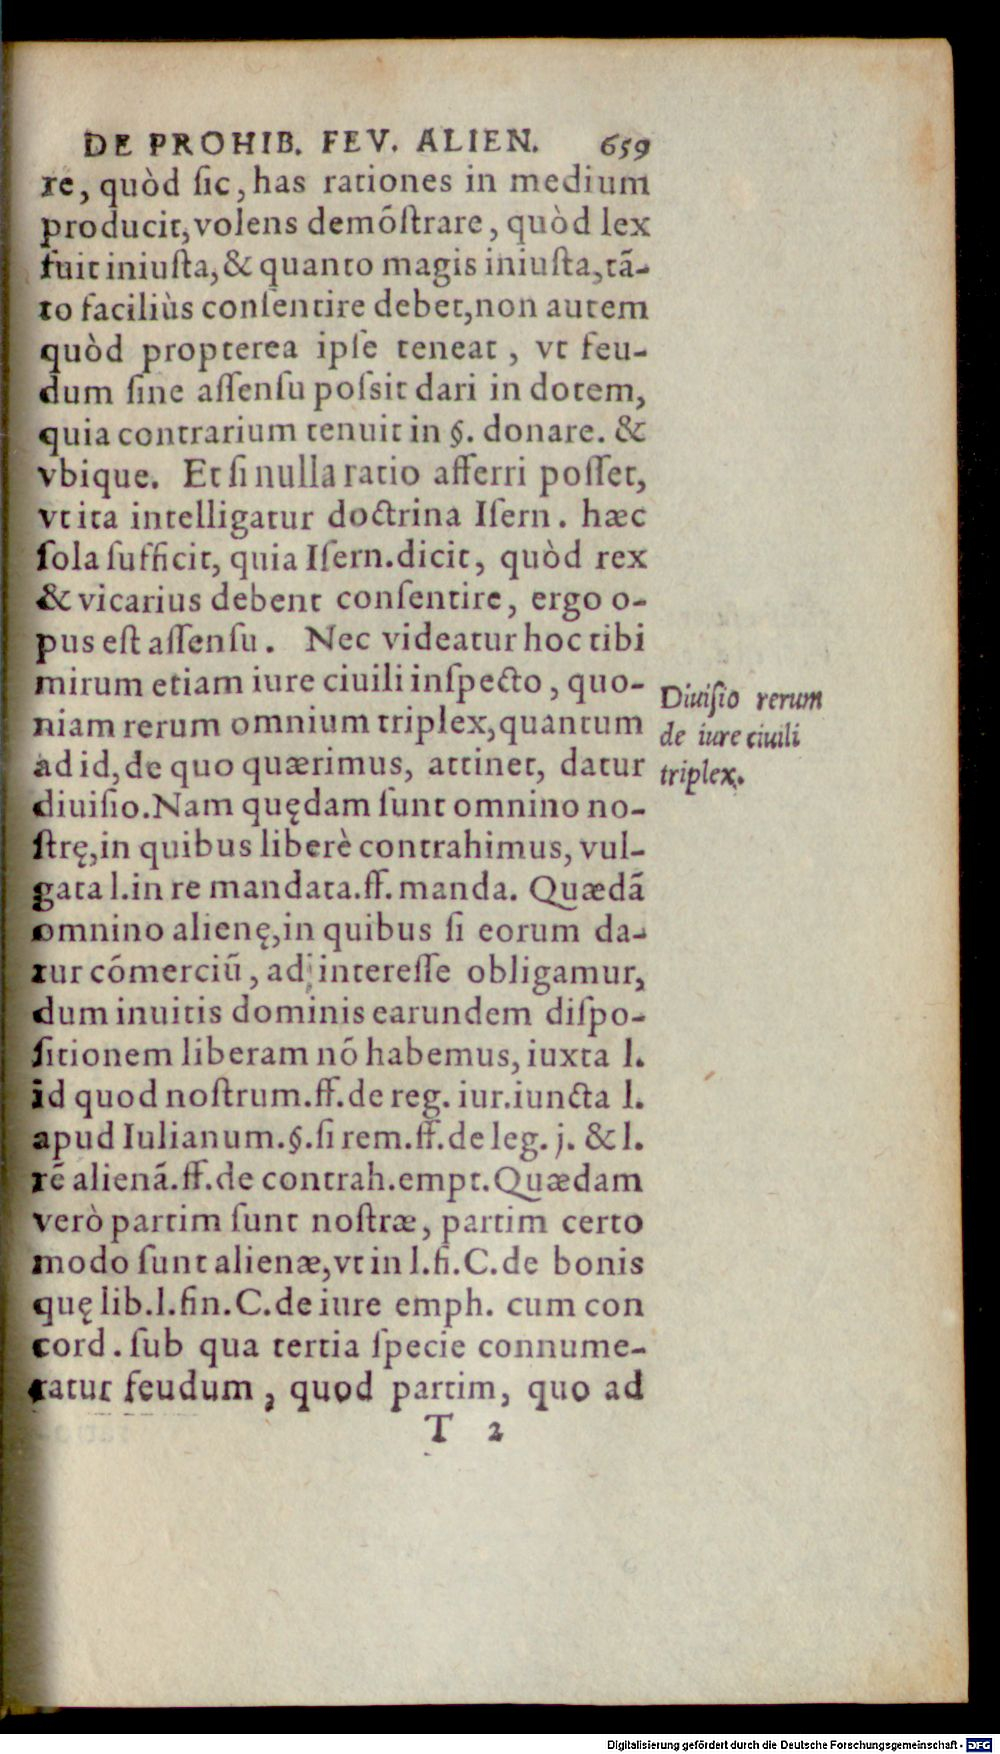 DE PROHIB. FEV. ALIEN. 659
re, quòd ſic, has rationes in medium
producit, volens demõſtrare, quòd lex
fuit iniuſta, & quanto magis iniuſta, tã-
to faciliùs conſentire debet, non autem
quòd propterea ipſe teneat, vt feu-
dum ſine aſſenſu poſsit dari in dotem,
quia contrarium tenuit in §. donare. &
vbique. Et ſi nulla ratio afferri poſſet,
vt ita intelligatur doctrina Iſern. hæc
ſola ſufficit, quia Iſern. dicit, quòd rex
& vicarius debent conſentire, ergo o-
pus eſt aſſenſu. Nec videatur hoc tibi
mirum etiam iure ciuili inſpecto, quo-
niam rerum omnium triplex, quantum
ad id, de quo quærimus, attinet, datur
diuiſio. Nam quędam ſunt omnino no-
ſtrę, in quibus liberè contrahimus, vul-
gata l. in re mandata. ff. manda. Quædã
omnino alienę, in quibus ſi eorum da-
tur cõmerciũ, ad intereſſe obligamur,
dum inuitis dominis earundem diſpo-
ſitionem liberam nõ habemus, iuxta l.
id quod noſtrum. ff. de reg. iur. iuncta l.
apud Iulianum. §. ſi rem. ff. de leg. j. & l.
rẽ alienã. ff. de contrah. empt. Quædam
verò partim ſunt noſtræ, partim certo
modo ſunt alienæ, vt in l. fi. C. de bonis
quę lib. l. fin. C. de iure emph. cum con
cord. ſub qua tertia ſpecie connume-
ratur feudum, quod partim, quo ad
T 2
Diuiſio rerum
de iure ciuili
triplex.
Digitalisierung gefördert durch die Deutsche Forschungsgemeinschaft - DFG